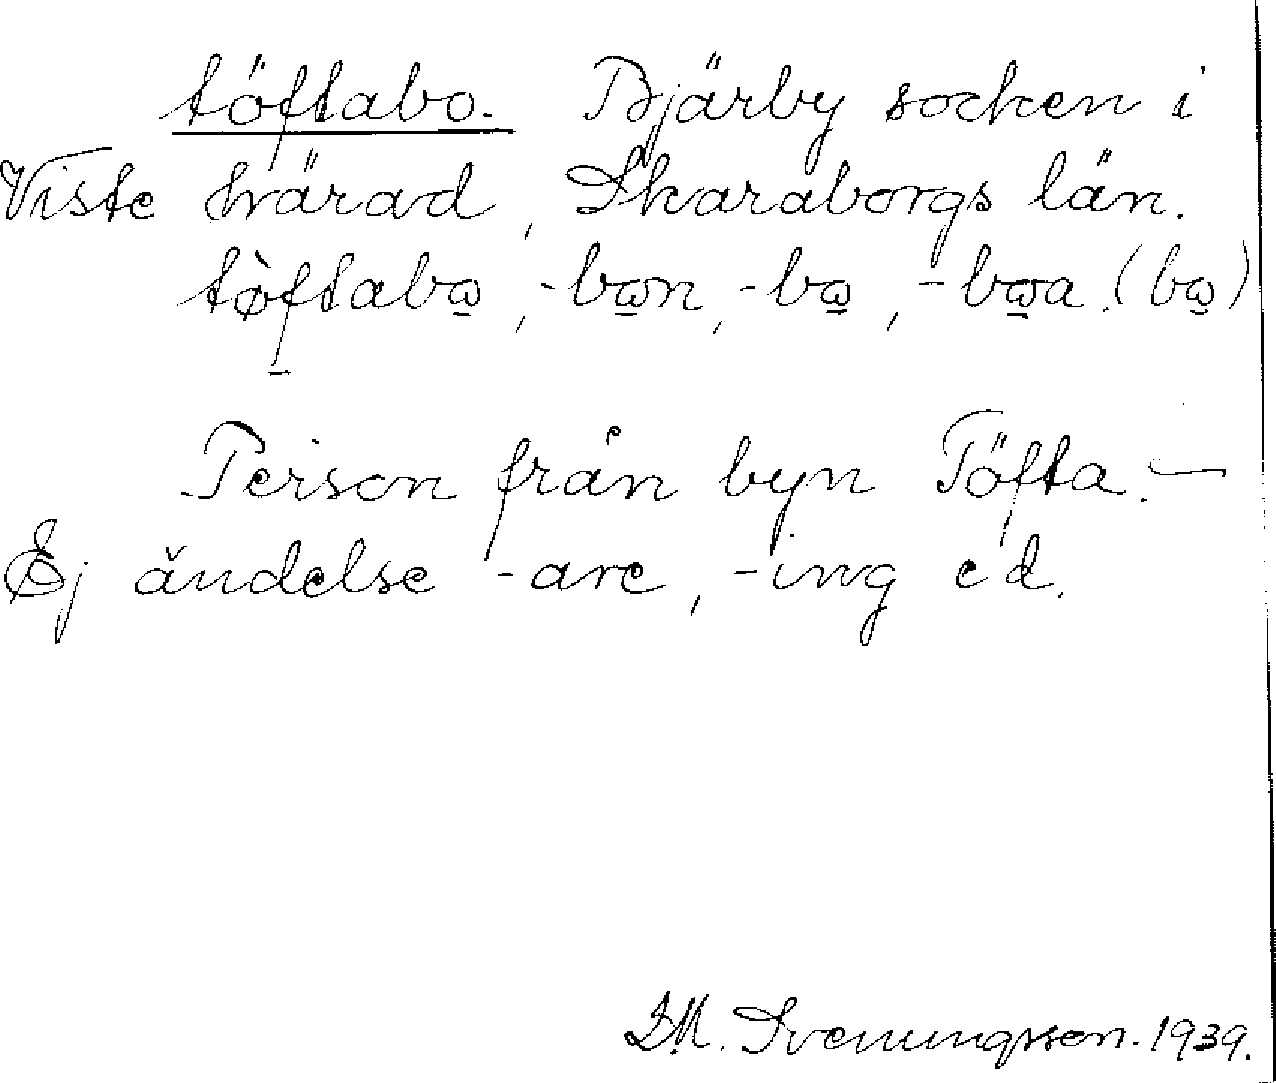 töftabo. Bjärby socken i
Viste härad, Skaraborgs län.
tø̀ftabω, -bωn, -bω, -bωa. (bω)
Person från byn Töfta. —
Ej ändelse -are, -ing ed.
D.M. Svenningsson. 1939.